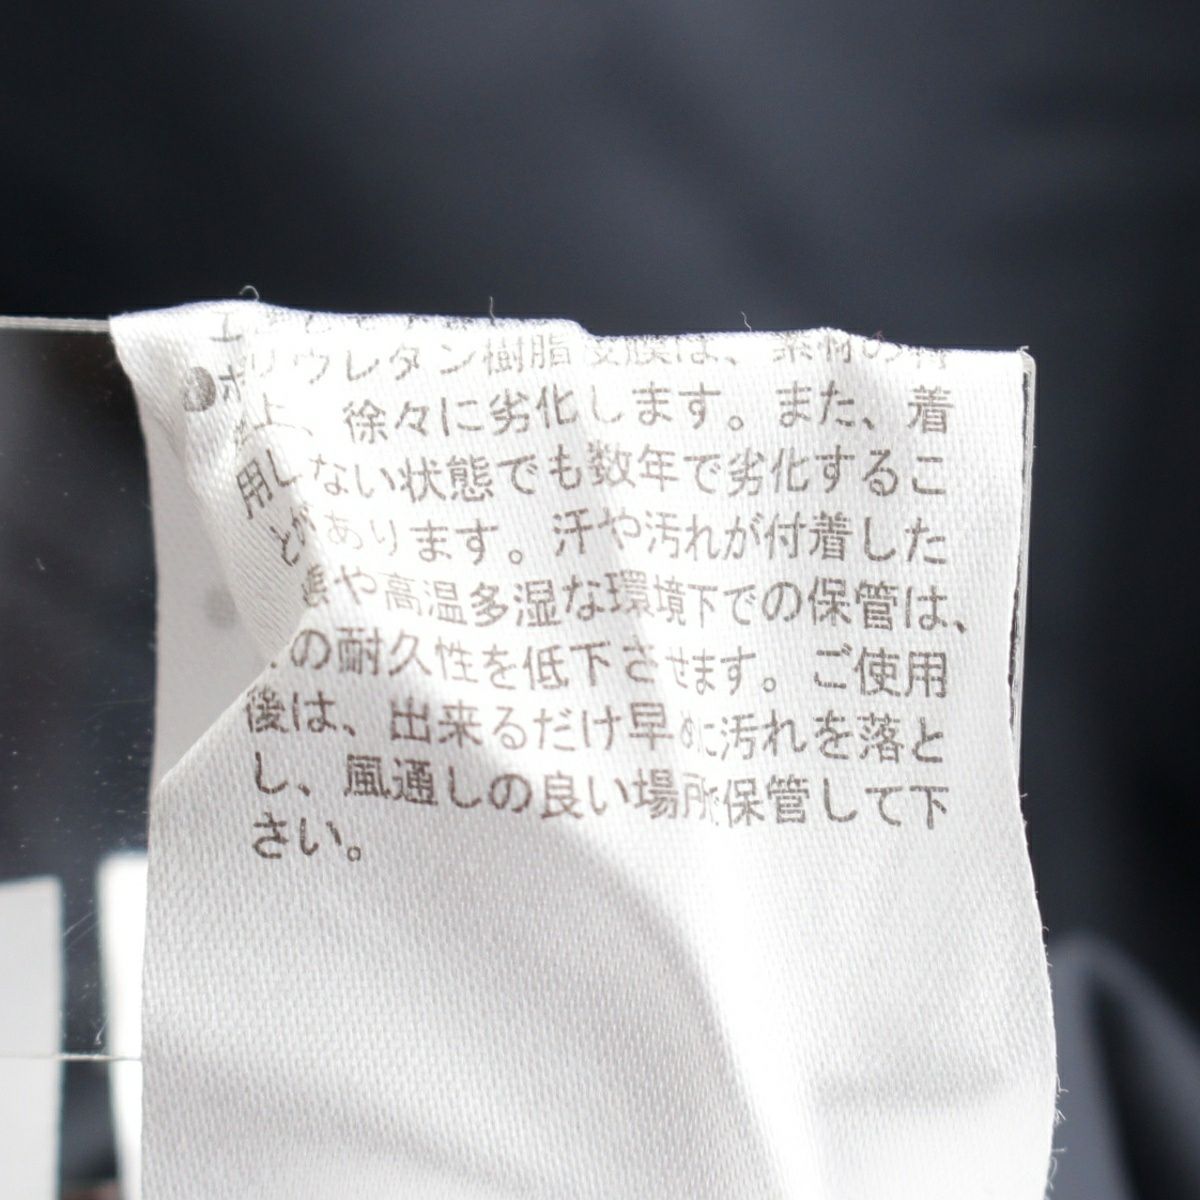 ●ポリウレタン樹脂皮膜は、素材の特
性上、徐々に劣化します。また、着
用しない状態でも数年で劣化するこ
とがあります。汗や汚れが付着した
や高温多湿な環境下での保管は、
の耐久性を低下させます。ご使用
後は、出来るだけ早めに汚れを落と
し、風通しの良い場所で保管して下
さい。